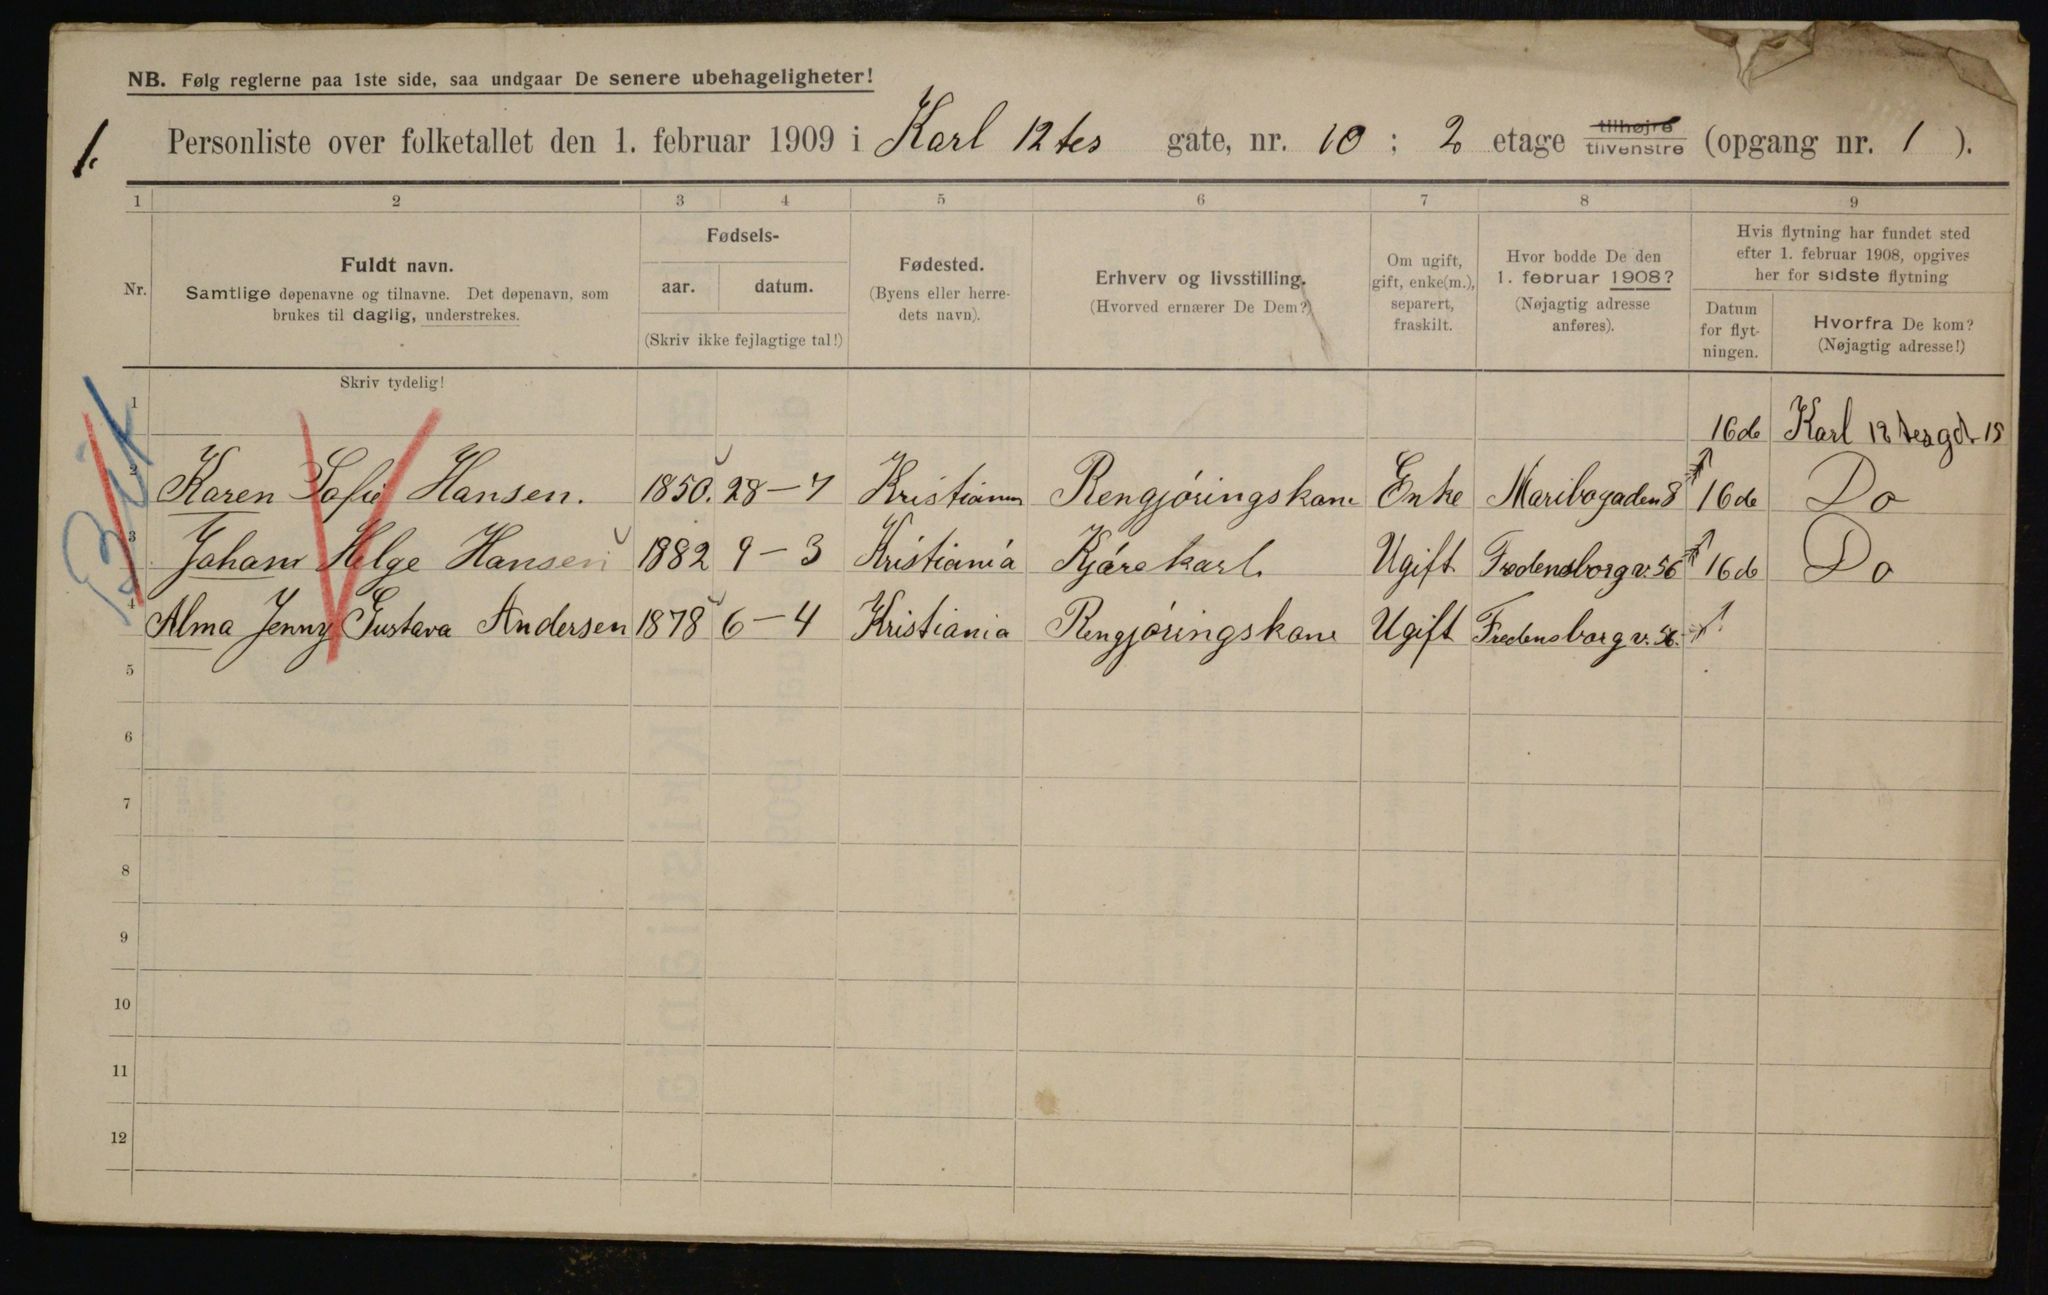 NB. Følg reglerne paa 1ste side, saa undgaar De senere ubehageligheter!
1. Personliste over folketallet den 1. februar 1909 i Karl 12tes gate, nr. 10 ; 2 etage tilhøjre tilvenstre (opgang nr. 1 ).
1 2 3 4 5 6 7 8 9
Nr.
Fuldt navn.
Samtlige døpenavne og tilnavne. Det døpenavn, som
brukes til daglig, understrekes.
Fødsels-
aar. datum.
(Skriv ikke fejlagtige tal!)
Fødested.
(Byens eller herre-
dets navn).
Erhverv og livsstilling.
(Hvorved ernærer De Dem?)
Om ugift,
gift, enke(m.),
separert,
fraskilt.
Hvor bodde De den
1. februar 1908?
(Nøjagtig adresse
anføres).
Hvis flytning har fundet sted
efter 1. februar 1908, opgives
her for sidste flytning
Datum
for flyt-
ningen.
Hvorfra De kom?
(Nøjagtig adresse!)
Skriv tydelig!
1 16de Karl 12tesgd. 15
2 Karen Sofie Hansen. 1850. 28-7 Kristiania Rengjøringskone Enke Maribogaden 8 16de Do
3 Johan Helge Hansen 1882 9-3 Kristiania Kjørekarl. Ugift Fredensborgv. 56 16de Do
4 Alma Jenny Gustava Andersen 1878 6-4 Kristiania Rengjøringskone Ugift Fredensborgv. 56.
5
6
7
8
9
10
11
12